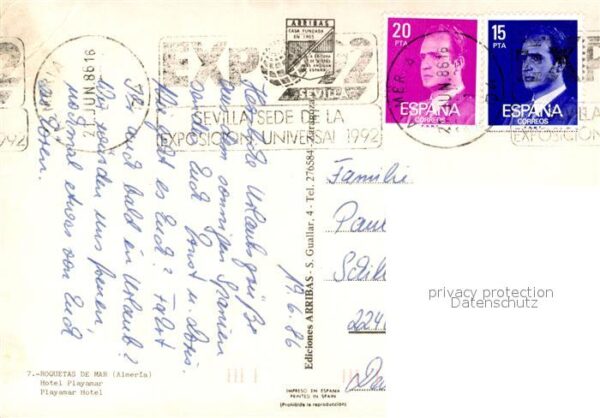 20
PTA
ESPAÑA
CORREOS
15
PTA
ESPAÑA
CORREOS
ARRIBAS
CASA FUNDADA
EN 1905
EXPO 92
SEVILLA
SEVILLA SEDE DE LA
EXPOSICION UNIVERSAL 1992
21 JUN. 86 16
992
EXPOSICION
19.6.86
Herzliche Urlaubsgrüße
aus dem sonnigen Spanien
senden Euch Ernst u. Doris.
Wie geht es Euch? Fahrt
Ihr auch bald in Urlaub?
Wir würden uns freuen,
mal etwas von Euch
zu hören.
Familie
Paul
224
privacy protection
Datenschutz
Ediciones ARRIBAS - S. Guallar, 4 - Tel. 276584 - Zaragoza
7.-ROQUETAS DE MAR (Almería)
Hotel Playamar
Playamar Hotel
IMPRESO EN ESPAÑA
PRINTED IN SPAIN
(Prohibida la reproducción)